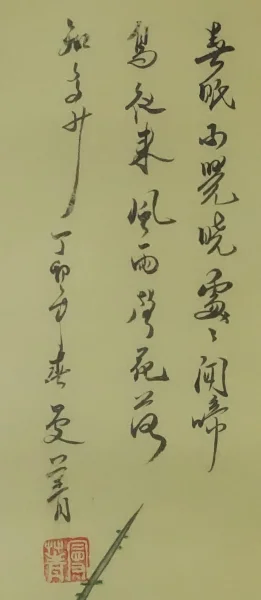 春眠不覺曉處〻聞啼
鳥夜來風雨聲花落
知多少 丁卯方春曼菁